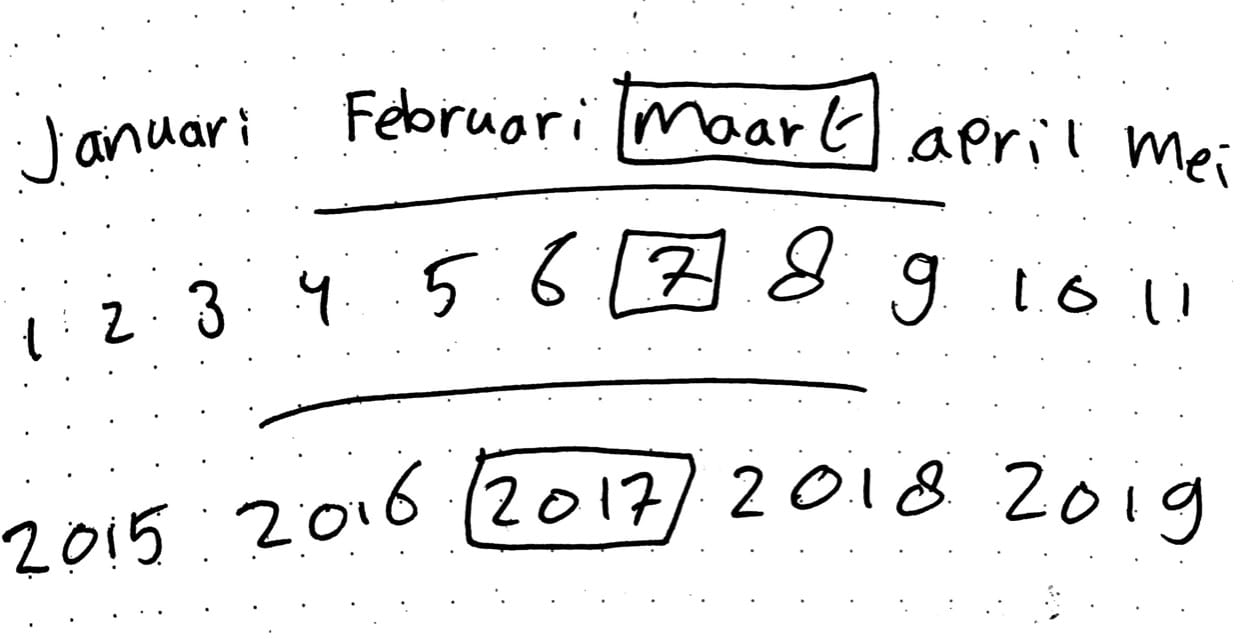 Januari Februari Maart april mei
1 2 3 4 5 6 7 8 9 10 11
2015 2016 2017 2018 2019